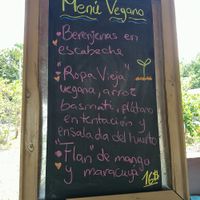 Menú Vegano
Berenjenas en
escabeche
"Ropa Vieja"
vegana, arroz
basmati, plátano
en tentación y
ensalada del huerto
"Flan" de mango
y maracuyá
16$